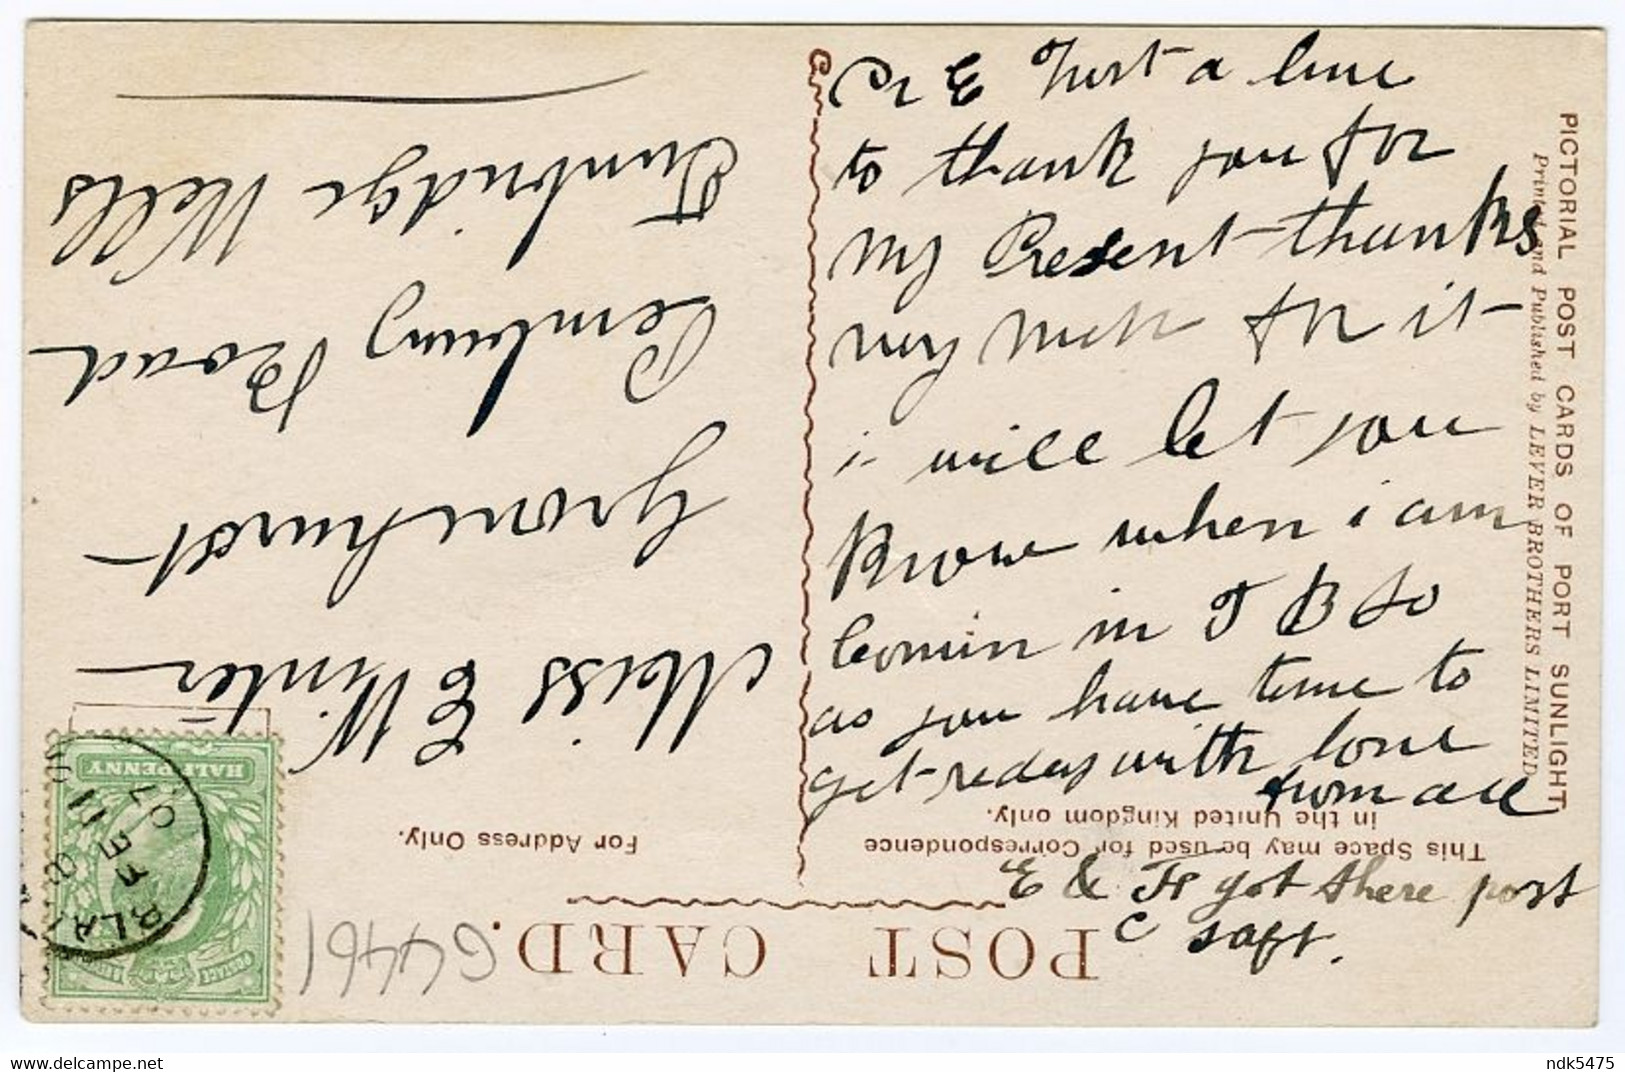 POST CARD.
This Space may be used for Correspondence
in the United Kingdom only.
For Address Only.
PICTORIAL POST CARDS OF PORT SUNLIGHT
Printed and Published by LEVER BROTHERS LIMITED
D E Just a line
to thank you for
my Present thanks
very much for it
i will let you
know when i am
comin in T B so
as you have time to
get ready with love
from all
E & F got there post
C saft.
Miss E Winter
Grovehurst
Pembury Road
Tunbridge Wells
64461
HALFPENNY
POSTAGE
FE 11
07
ndk5475